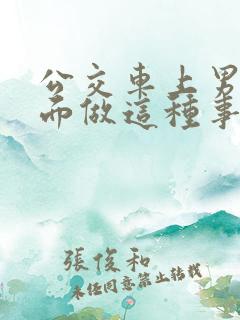 公交車上男
而做這種事
張俊和
未經同意禁止轉載